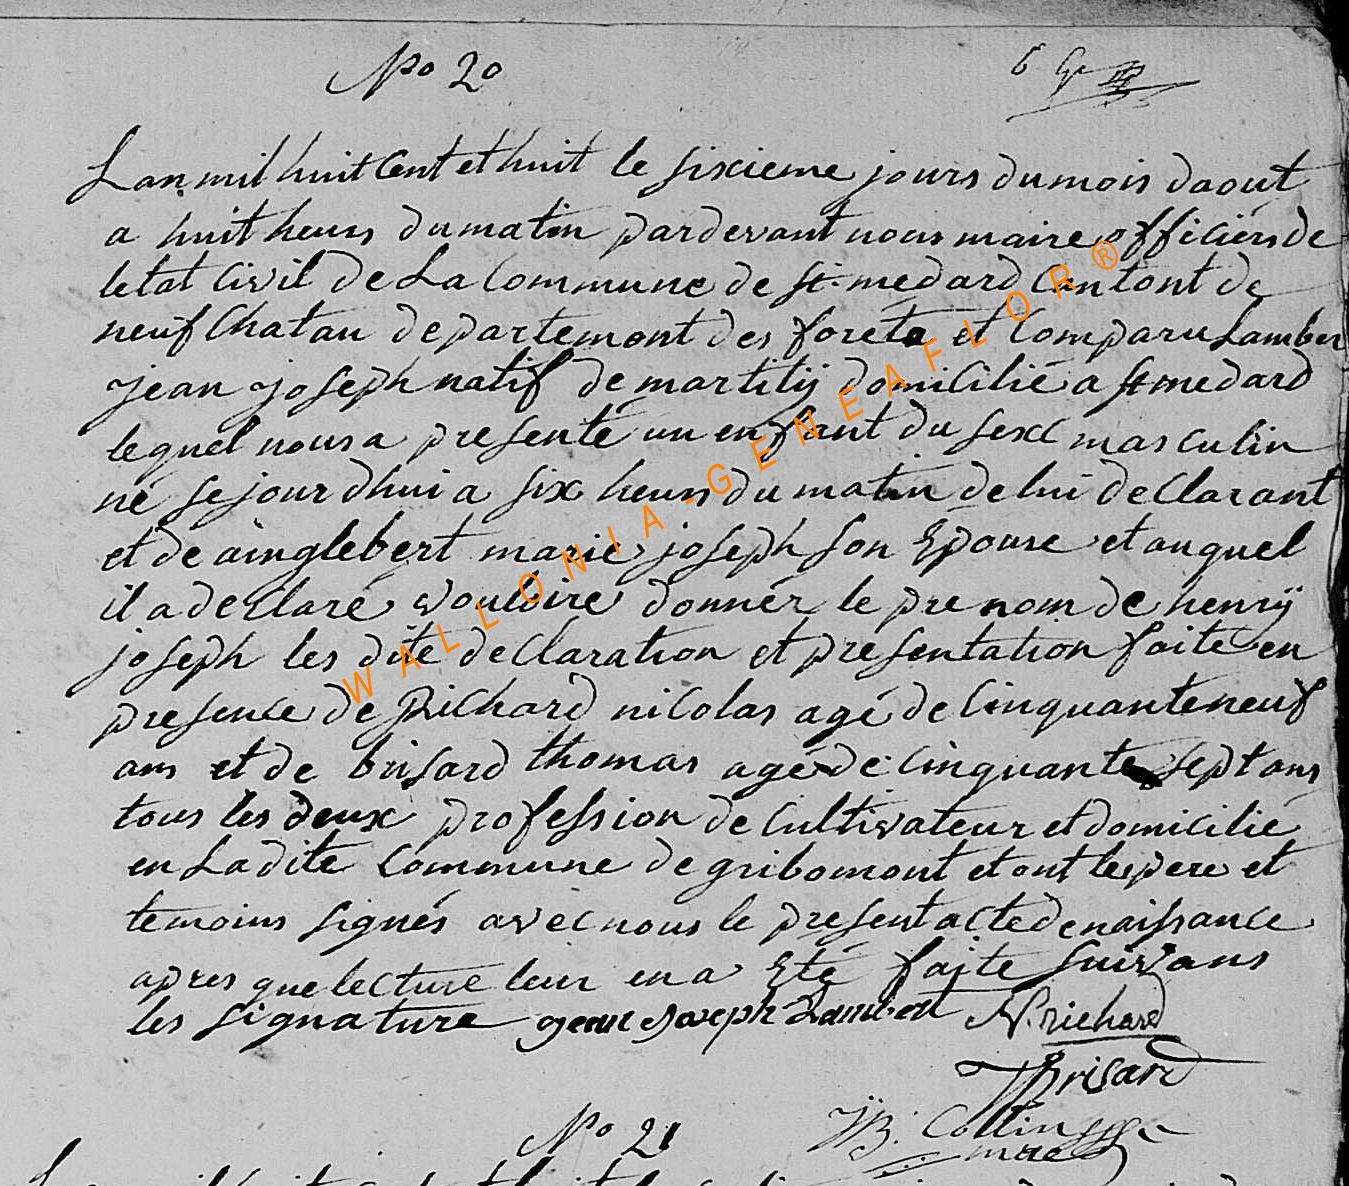 No 20
Lan mil huit Cent et huit le sixieme jours du mois daout
a huit heurs du matin pardevant nous maire officiers de
letat Civil de La Commune de St. medard Cantont de
neufChatau departemont des forets et Comparu Lamber
jean joseph natif de martilij domicilié a St medard
lequel nous a presenté un enfant du sexe masculin
né sejourdhui a six heurs du matin de lui declarant
et de ainglebert marie joseph son Epouse et auquel
il a declaré vouloire donnér le prenom de henrij
joseph les dite declaration et presentation faite en
presence de Richard nicolas agé de Cinquante neuf
ans et de brisard thomas agé de cinquante sept ans
tous les deux profession de Cultivateur et domicilié
en La dite Commune de gribomont et ont les pere et
temoins signés avec nous le present acte de naissance
apres que lecture leur en a Eté faite suivans
les signature jean Joseph Lambert N. richard
T Brisard
No 21 JB. Collin
mre
WALLONIA-GENEAFLOR®